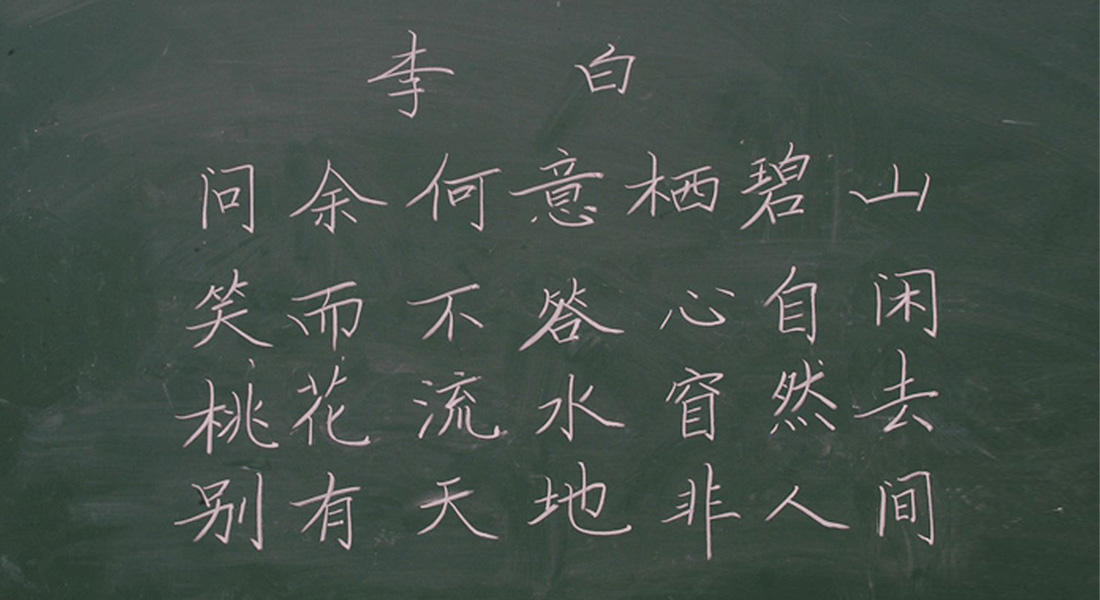 李白
问余何意栖碧山
笑而不答心自闲
桃花流水窅然去
别有天地非人间